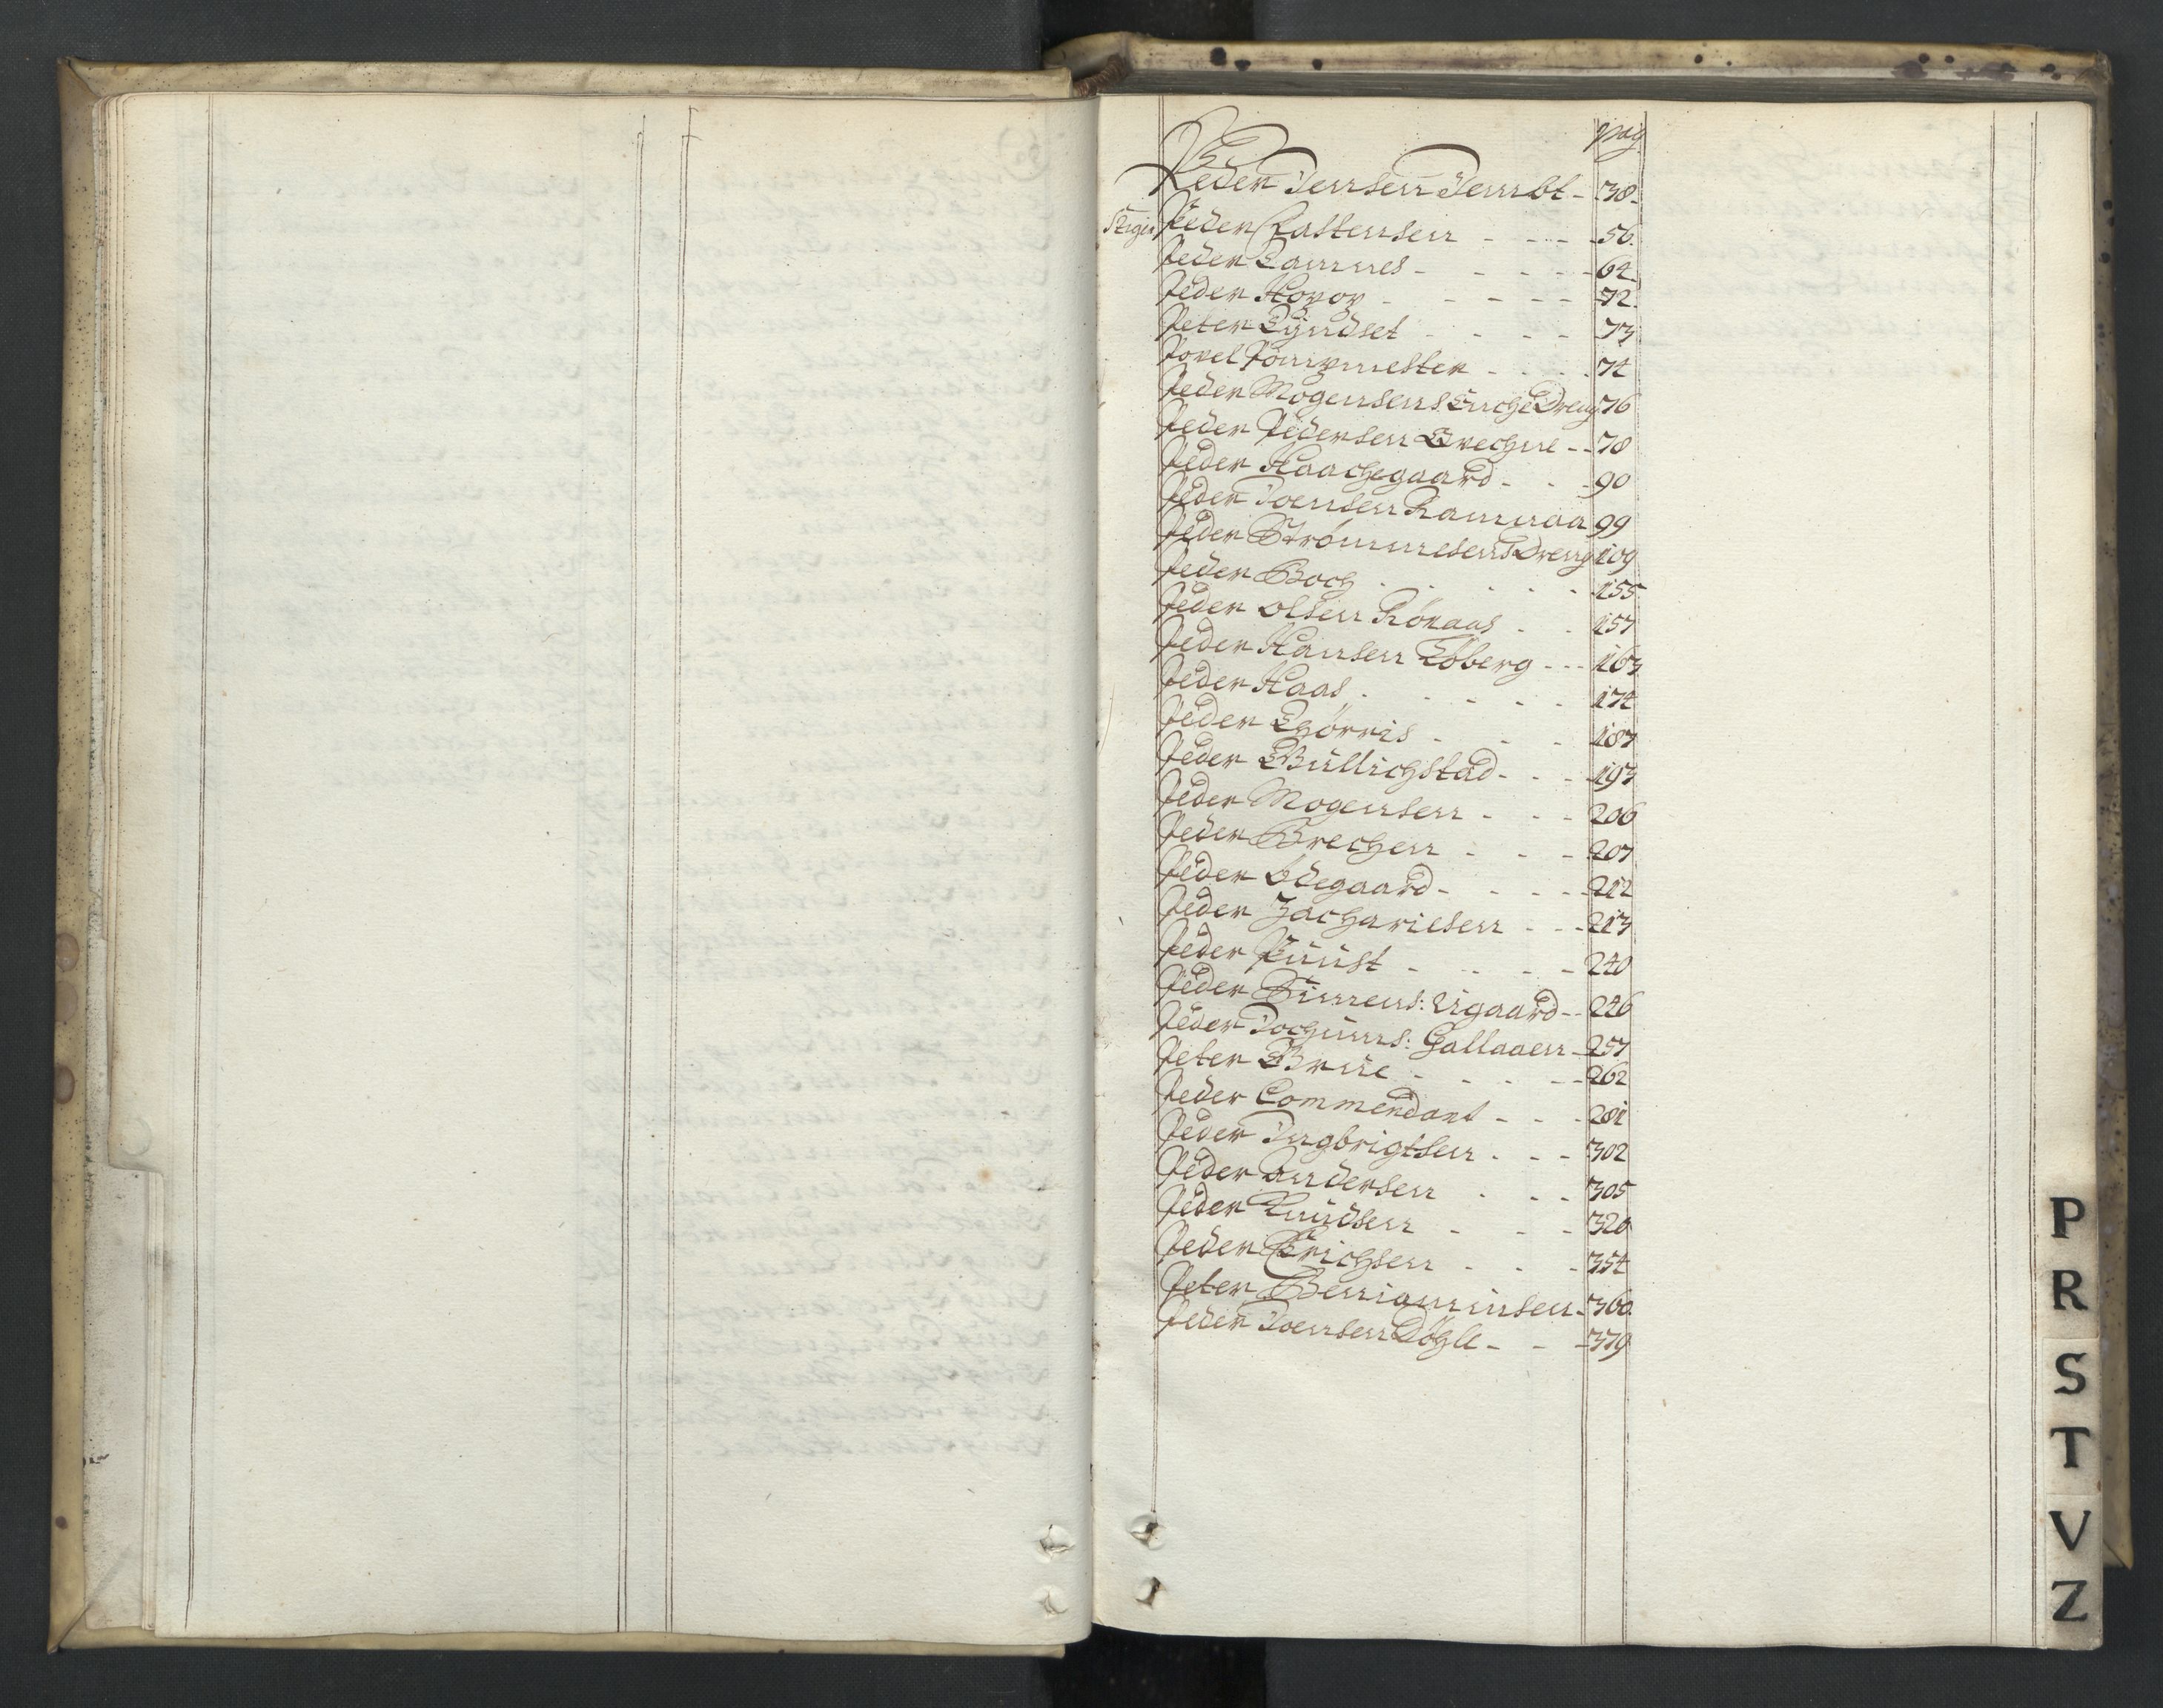 pag
Peder Jensen Jembt - 38.
Stiger Peder Castensen - - - - 56.
Peder Lamnes - - - - - 64
Peder Hopop - - - - - 72.
Peter Tyndset - - - - 73
Povel Pompmester - - - - 74
Peder Mogensens Enche Dreng 76
Peder Pedersen Brechne - - 78
Peder Haachegaard - - - 90
Peder Joensen Ramaa 99
Peder Strömmesens Dreng 109
Peder Boch - - - - 155
Peder Olsen Rönaas - - 157
Peder Hansen Töberg - - - 163
Peder Haas - - - - - 174
Peder - - - 187
Peder Büllichstad - - - 193
Peder Mogensen - - - 206
Peder Brechen - - - 207
Peder Ödegaard - - - - 212
Peder Zachariesen - - - 213
Peder Puust - - - - 240
Peder Simens: Aigaard - - 246
Peder Jochums: Gallaaen - 257
Peter Brüe - - - - - 262
Peder Commendant - - - 281
Peder Ingbrigtsen - - - 302
Peder Andersen - - - 305
Peder Knudsen - - - 320
Peder Erichsen - - - 354
Peter Beniaminsen - 360.
Peder Joensen Döhle - - - 379
P
R
S
T
V
Z